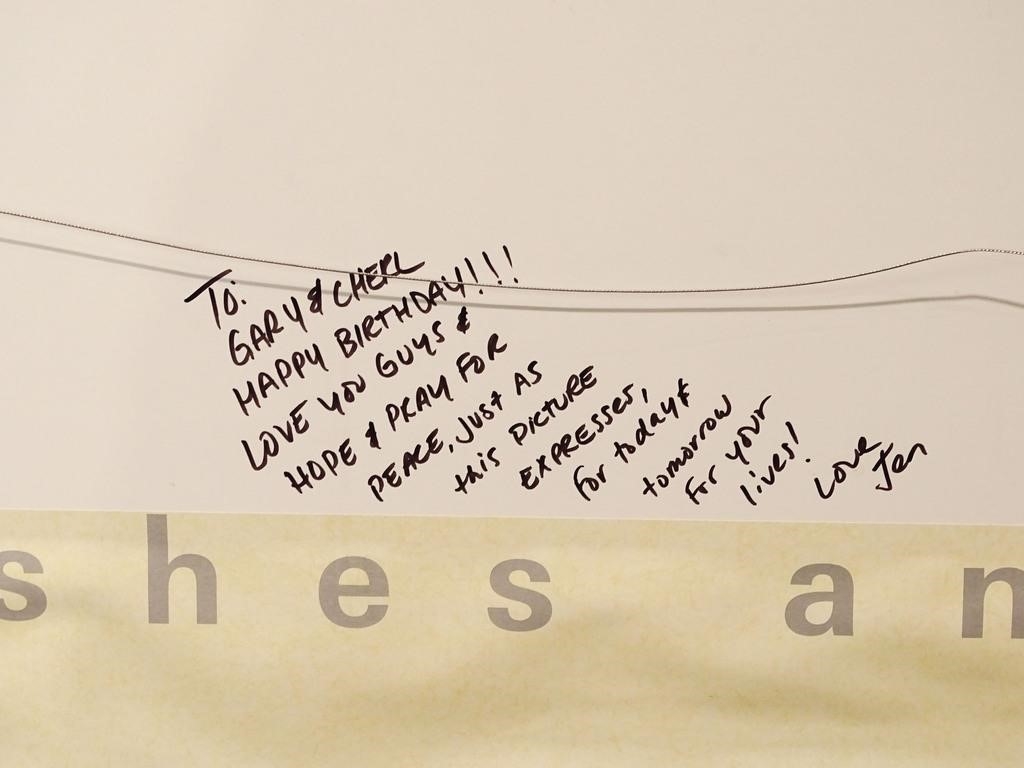 To:
GARY & CHERL
HAPPY BIRTHDAY!!!
LOVE YOU GUYS &
HOPE & PRAY FOR
PEACE, JUST AS
this PICTURE
EXPRESSES,
for today &
tomorrow
For your
lives!
Love
Jen
shes an